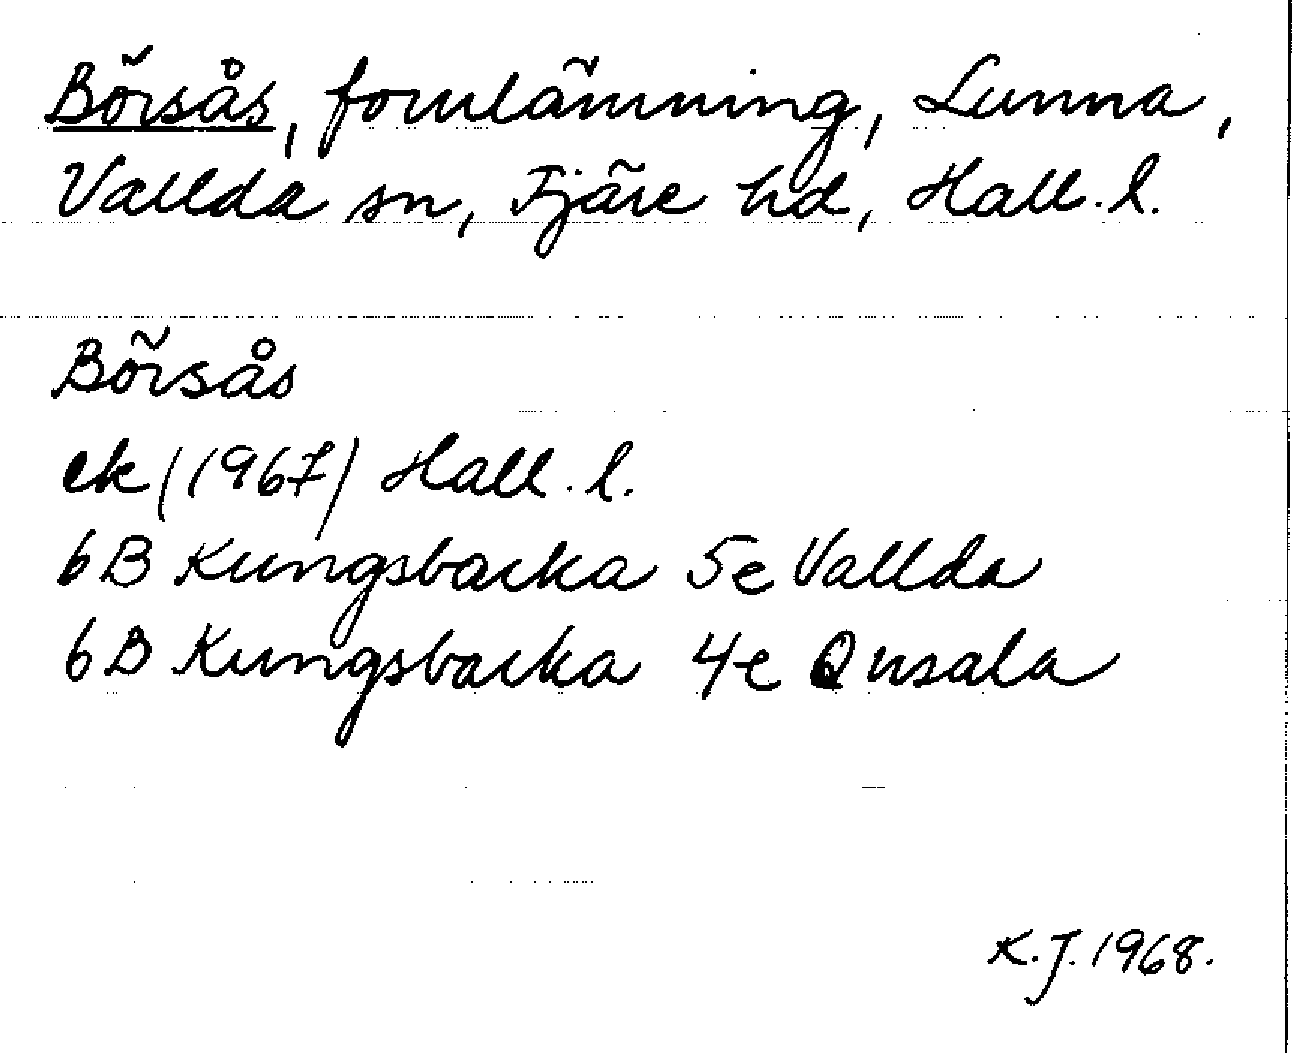 Börsås, fornlämning, Lunna,
Vallda sn, Fjäre hd, Hall. l.
Börsås
ek (1967) Hall. l.
6B Kungsbacka 5e Vallda
6B Kungsbacka 4e Onsala
K.J. 1968.